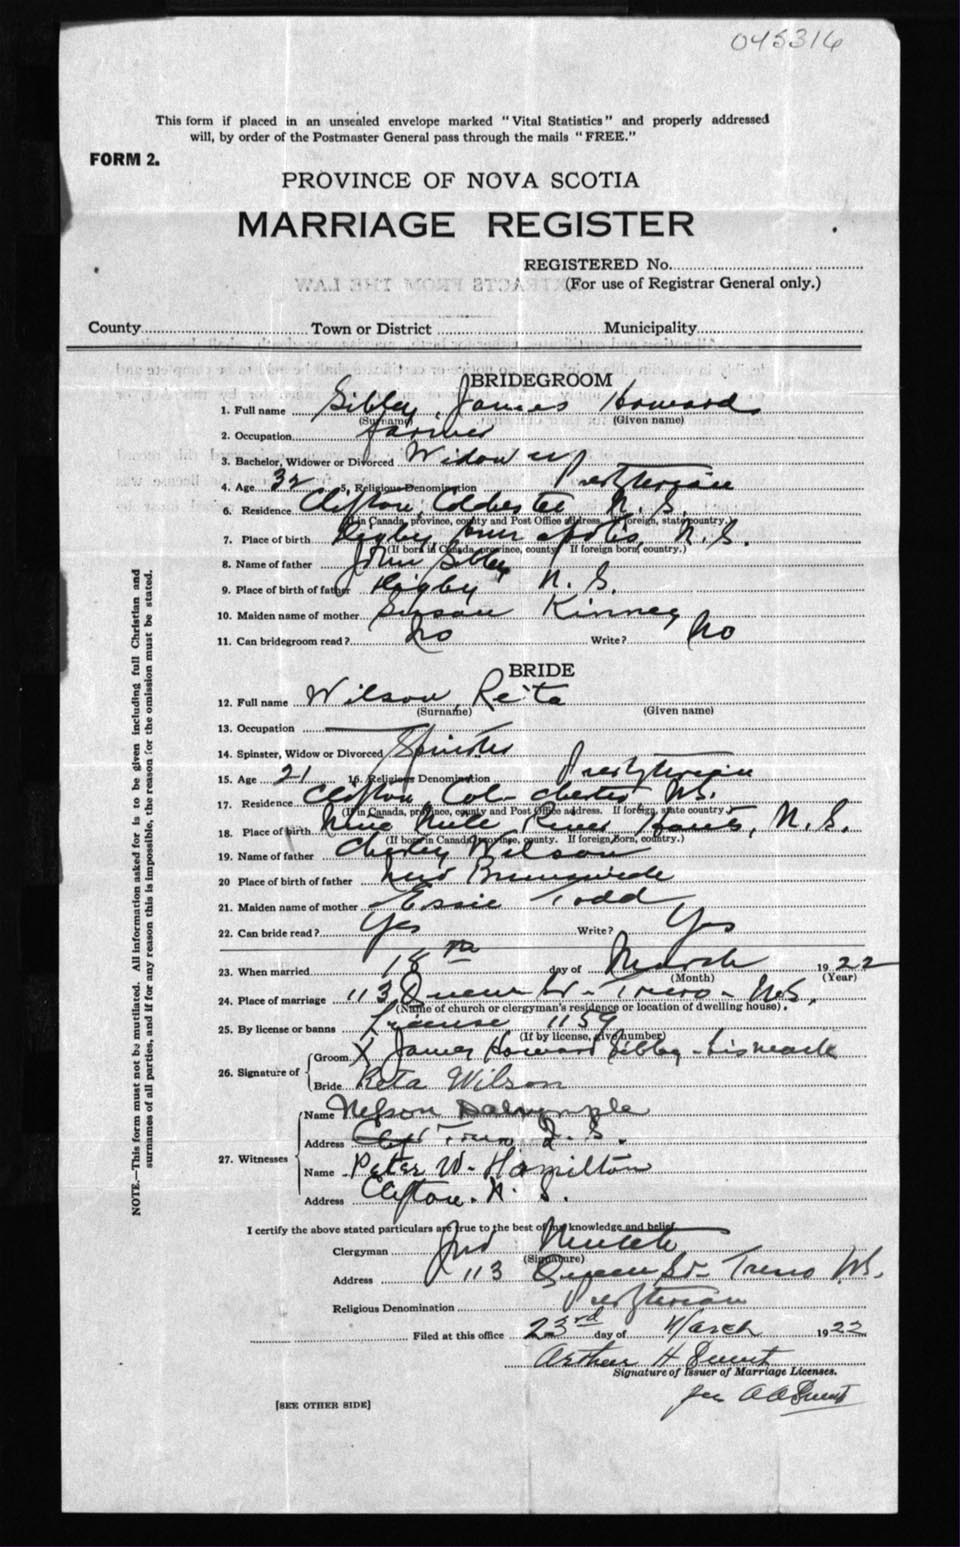 045316
This form if placed in an unsealed envelope marked "Vital Statistics" and properly addressed
will, by order of the Postmaster General pass through the mails "FREE."
FORM 2.
PROVINCE OF NOVA SCOTIA
MARRIAGE REGISTER
REGISTERED No.
(For use of Registrar General only.)
County Town or District Municipality
BRIDEGROOM
1. Full name Sibley, James Howard
(Surname) (Given name)
2. Occupation farmer
3. Bachelor, Widower or Divorced Widower
4. Age 32 5, Religious Denomination Presbyterian
6. Residence Clifton, Colchester N.S.
(If in Canada, province, county and Post Office address. If foreign, state country.)
7. Place of birth Digby, N.S.
(If born in Canada, province, county If foreign born, country.)
8. Name of father John Sibley
9. Place of birth of father Digby N.S.
10. Maiden name of mother Susan Kinney
11. Can bridegroom read? No Write? No
BRIDE
12. Full name Wilson, Reita
(Surname) (Given name)
13. Occupation
14. Spinster, Widow or Divorced Spinster
15. Age 21 16. Religious Denomination Presbyterian
17. Residence Clifton Colchester N.S.
(If in Canada, province, county and Post Office address. If foreign, state country.)
18. Place of birth Nine Mile River Hants, N.S.
(If born in Canada, province, county. If foreign born, country.)
19. Name of father Wilson
20 Place of birth of father New Brunswick
21. Maiden name of mother Essie Todd
22. Can bride read? Yes Write? Yes
23. When married 18th day of March 1922
(Month) (Year)
24. Place of marriage 113 Queen St - Truro - N.S.
(Name of church or clergyman's residence or location of dwelling house).
25. By license or banns License 1159
(If by license, give number)
26. Signature of Groom X James Howard Sibley - his mark
Bride Reta Wilson
27. Witnesses Name Nelson Dalrymple
Address Truro N.S.
Name Peter W. Hamilton
Address Clifton. N.S.
I certify the above stated particulars are true to the best of my knowledge and belief.
Clergyman Jno
(Signature)
Address 113 Queen St - Truro N.S.
Religious Denomination Presbyterian
Filed at this office 23rd day of March 1922
Arthur H
Signature of Issuer of Marriage Licenses.
per A A
[SEE OTHER SIDE]
NOTE.—This form must not be mutilated. All information asked for is to be given including full Christian and
surnames of all parties, and if for any reason this is impossible, the reason for the omission must be stated.